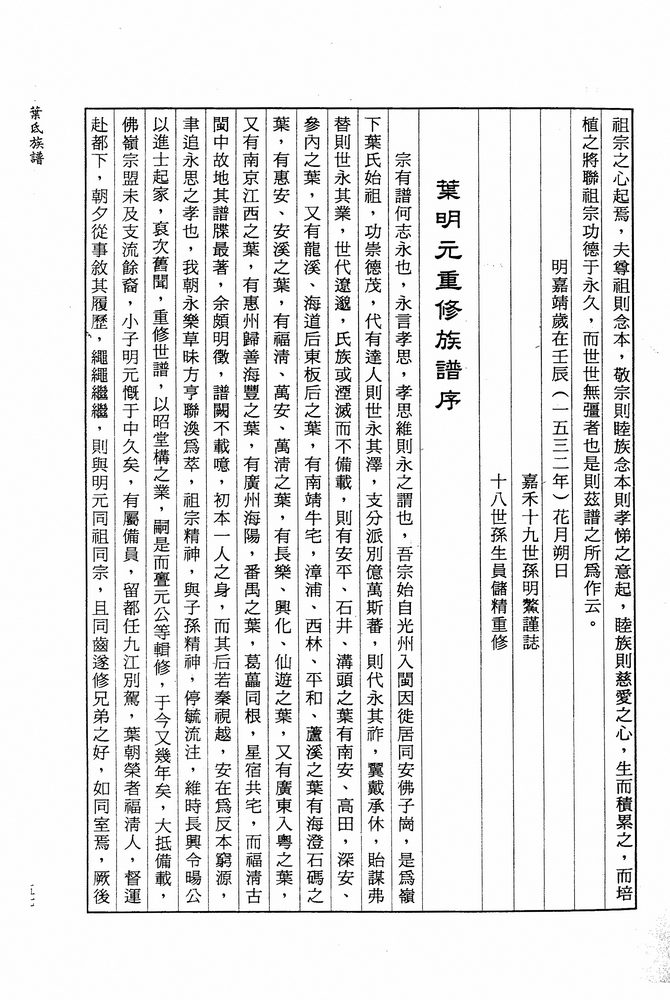 祖宗之心起焉，夫尊祖則念本，敬宗則睦族念本則孝悌之意起，睦族則慈愛之心，生而積累之，而培
植之將聯祖宗功德于永久，而世世無彊者也是則茲譜之所為作云。
明嘉靖歲在壬辰（一五三二年）花月朔日
嘉禾十九世孫明鰲謹誌
十八世孫生員儲精重修
葉明元重修族譜序
宗有譜何志永也，永言孝思，孝思維則永之謂也，吾宗始自光州入閩因徙居同安佛子崗，是為嶺
下葉氏始祖，功崇德茂，代有達人則世永其澤，支分派別億萬斯蕃，則代永其祚，翼戴承休，貽謀弗
替則世永其業，世代遼邈，氏族或湮滅而不備載，則有安平、石井、溝頭之葉有南安、高田，深安、
參內之葉，又有龍溪、海道后東板后之葉，有南靖牛宅，漳浦、西林、平和、蘆溪之葉有海澄石碼之
葉，有惠安、安溪之葉，有福清、萬安、萬清之葉，有長樂、興化、仙遊之葉，又有廣東入粵之葉，
又有南京江西之葉，有惠州歸善海豐之葉，有廣州海陽，番禺之葉，葛藟同根，星宿共宅，而福清古
閩中故地其譜牒最著，余頗明徵，譜闕不載噫，初本一人之身，而其后若秦視越，安在為反本窮源，
聿追永思之孝也，我朝永樂草昧方亨聯渙為萃，祖宗精神，與子孫精神，停毓流注，維時長興令暘公
以進士起家，裒次舊聞，重修世譜，以昭堂構之業，嗣是而亶元公等輯修，于今又幾年矣，大抵備載，
佛嶺宗盟未及支流餘裔，小子明元慨于中久矣，有屬備員，留都任九江別駕，葉朝榮者福清人，督運
赴都下，朝夕從事敘其履歷，繩繩繼繼，則與明元同祖同宗，且同齒遂修兄弟之好，如同室焉，厥後
葉氏族譜